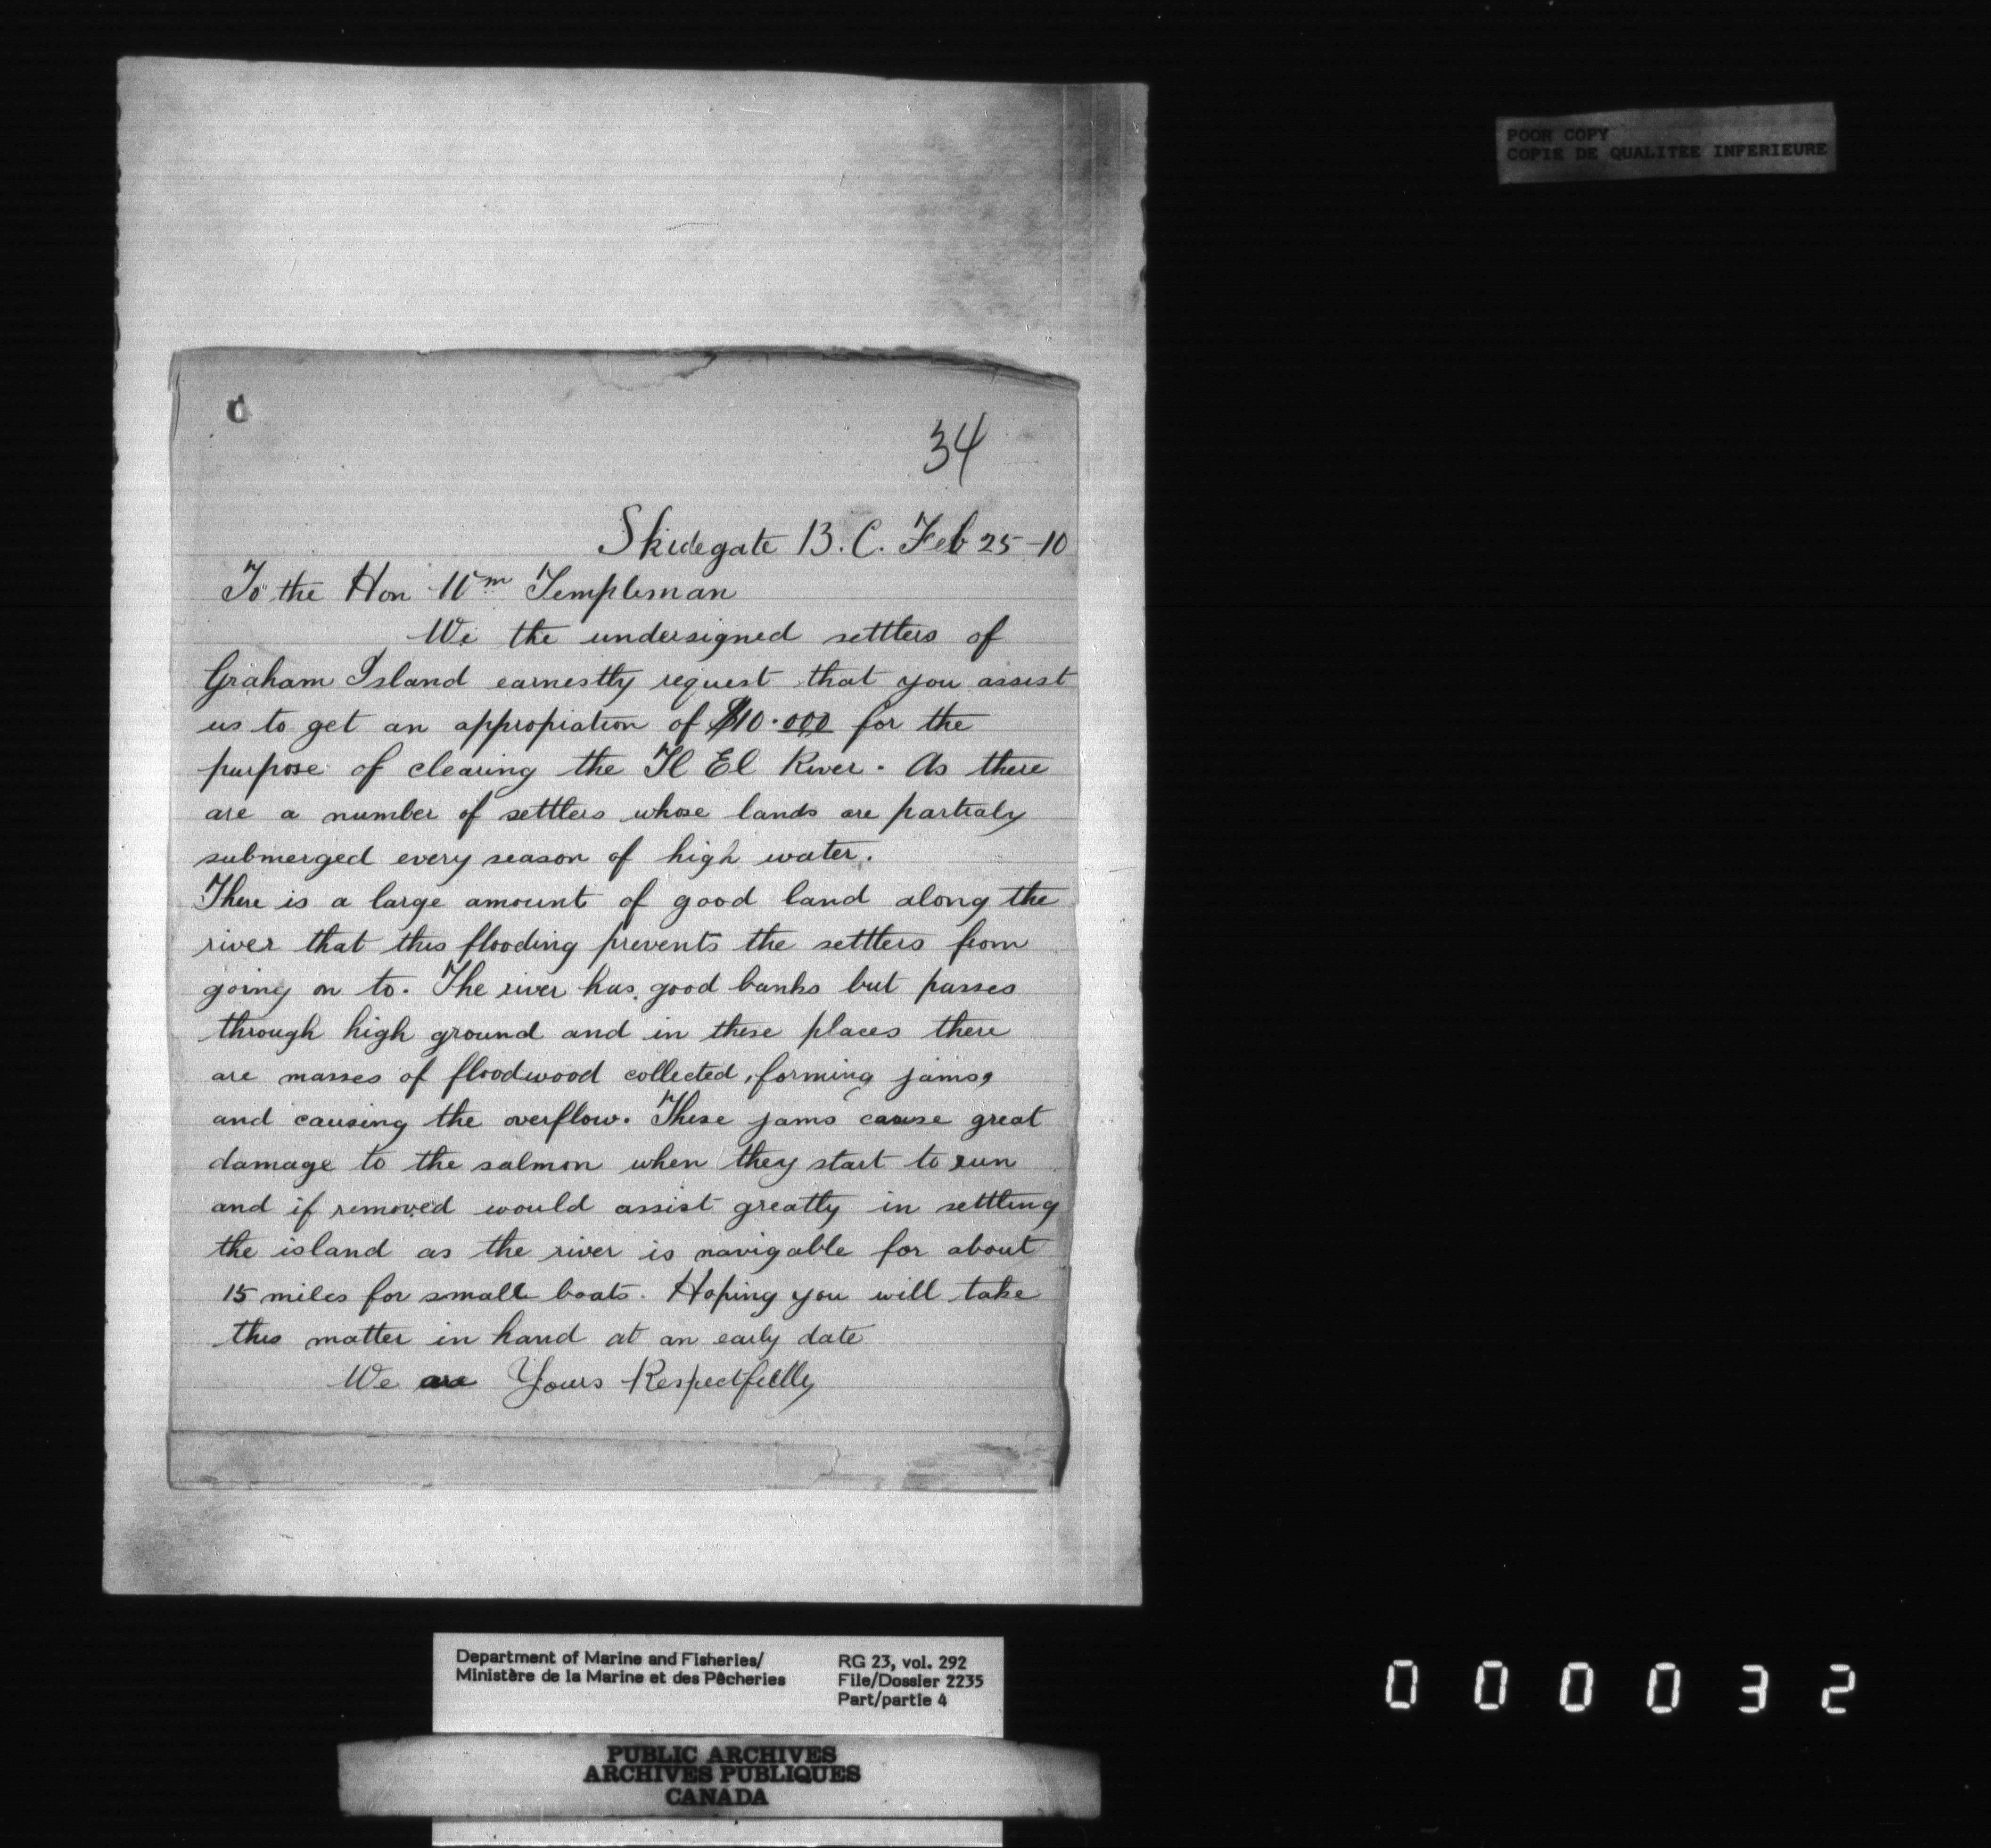 POOR COPY
COPIE DE QUALITEE INFERIEURE
34
Skidegate B.C. Feb 25-10
To the Hon Wm Templeman
We the undersigned settlers of
Graham Island earnestly request that you assist
us to get an appropiation of $10.000 for the
purpose of clearing the Tl El River. As there
are a number of settlers whose lands are partialy
submerged every season of high water.
There is a large amount of good land along the
river that this flooding prevents the settlers from
going on to. The river has good banks but passes
through high ground and in these places there
are masses of floodwood collected, forming jams,
and causing the overflow. These jams cause great
damage to the salmon when they start to run
and if removed would assist greatly in settling
the island as the river is navigable for about
15 miles for small boats. Hoping you will take
this matter in hand at an early date
We are Yours Respectfully
Department of Marine and Fisheries/
Ministère de la Marine et des Pêcheries
RG 23, vol. 292
File/Dossier 2235
Part/partie 4
PUBLIC ARCHIVES
ARCHIVES PUBLIQUES
CANADA
000032